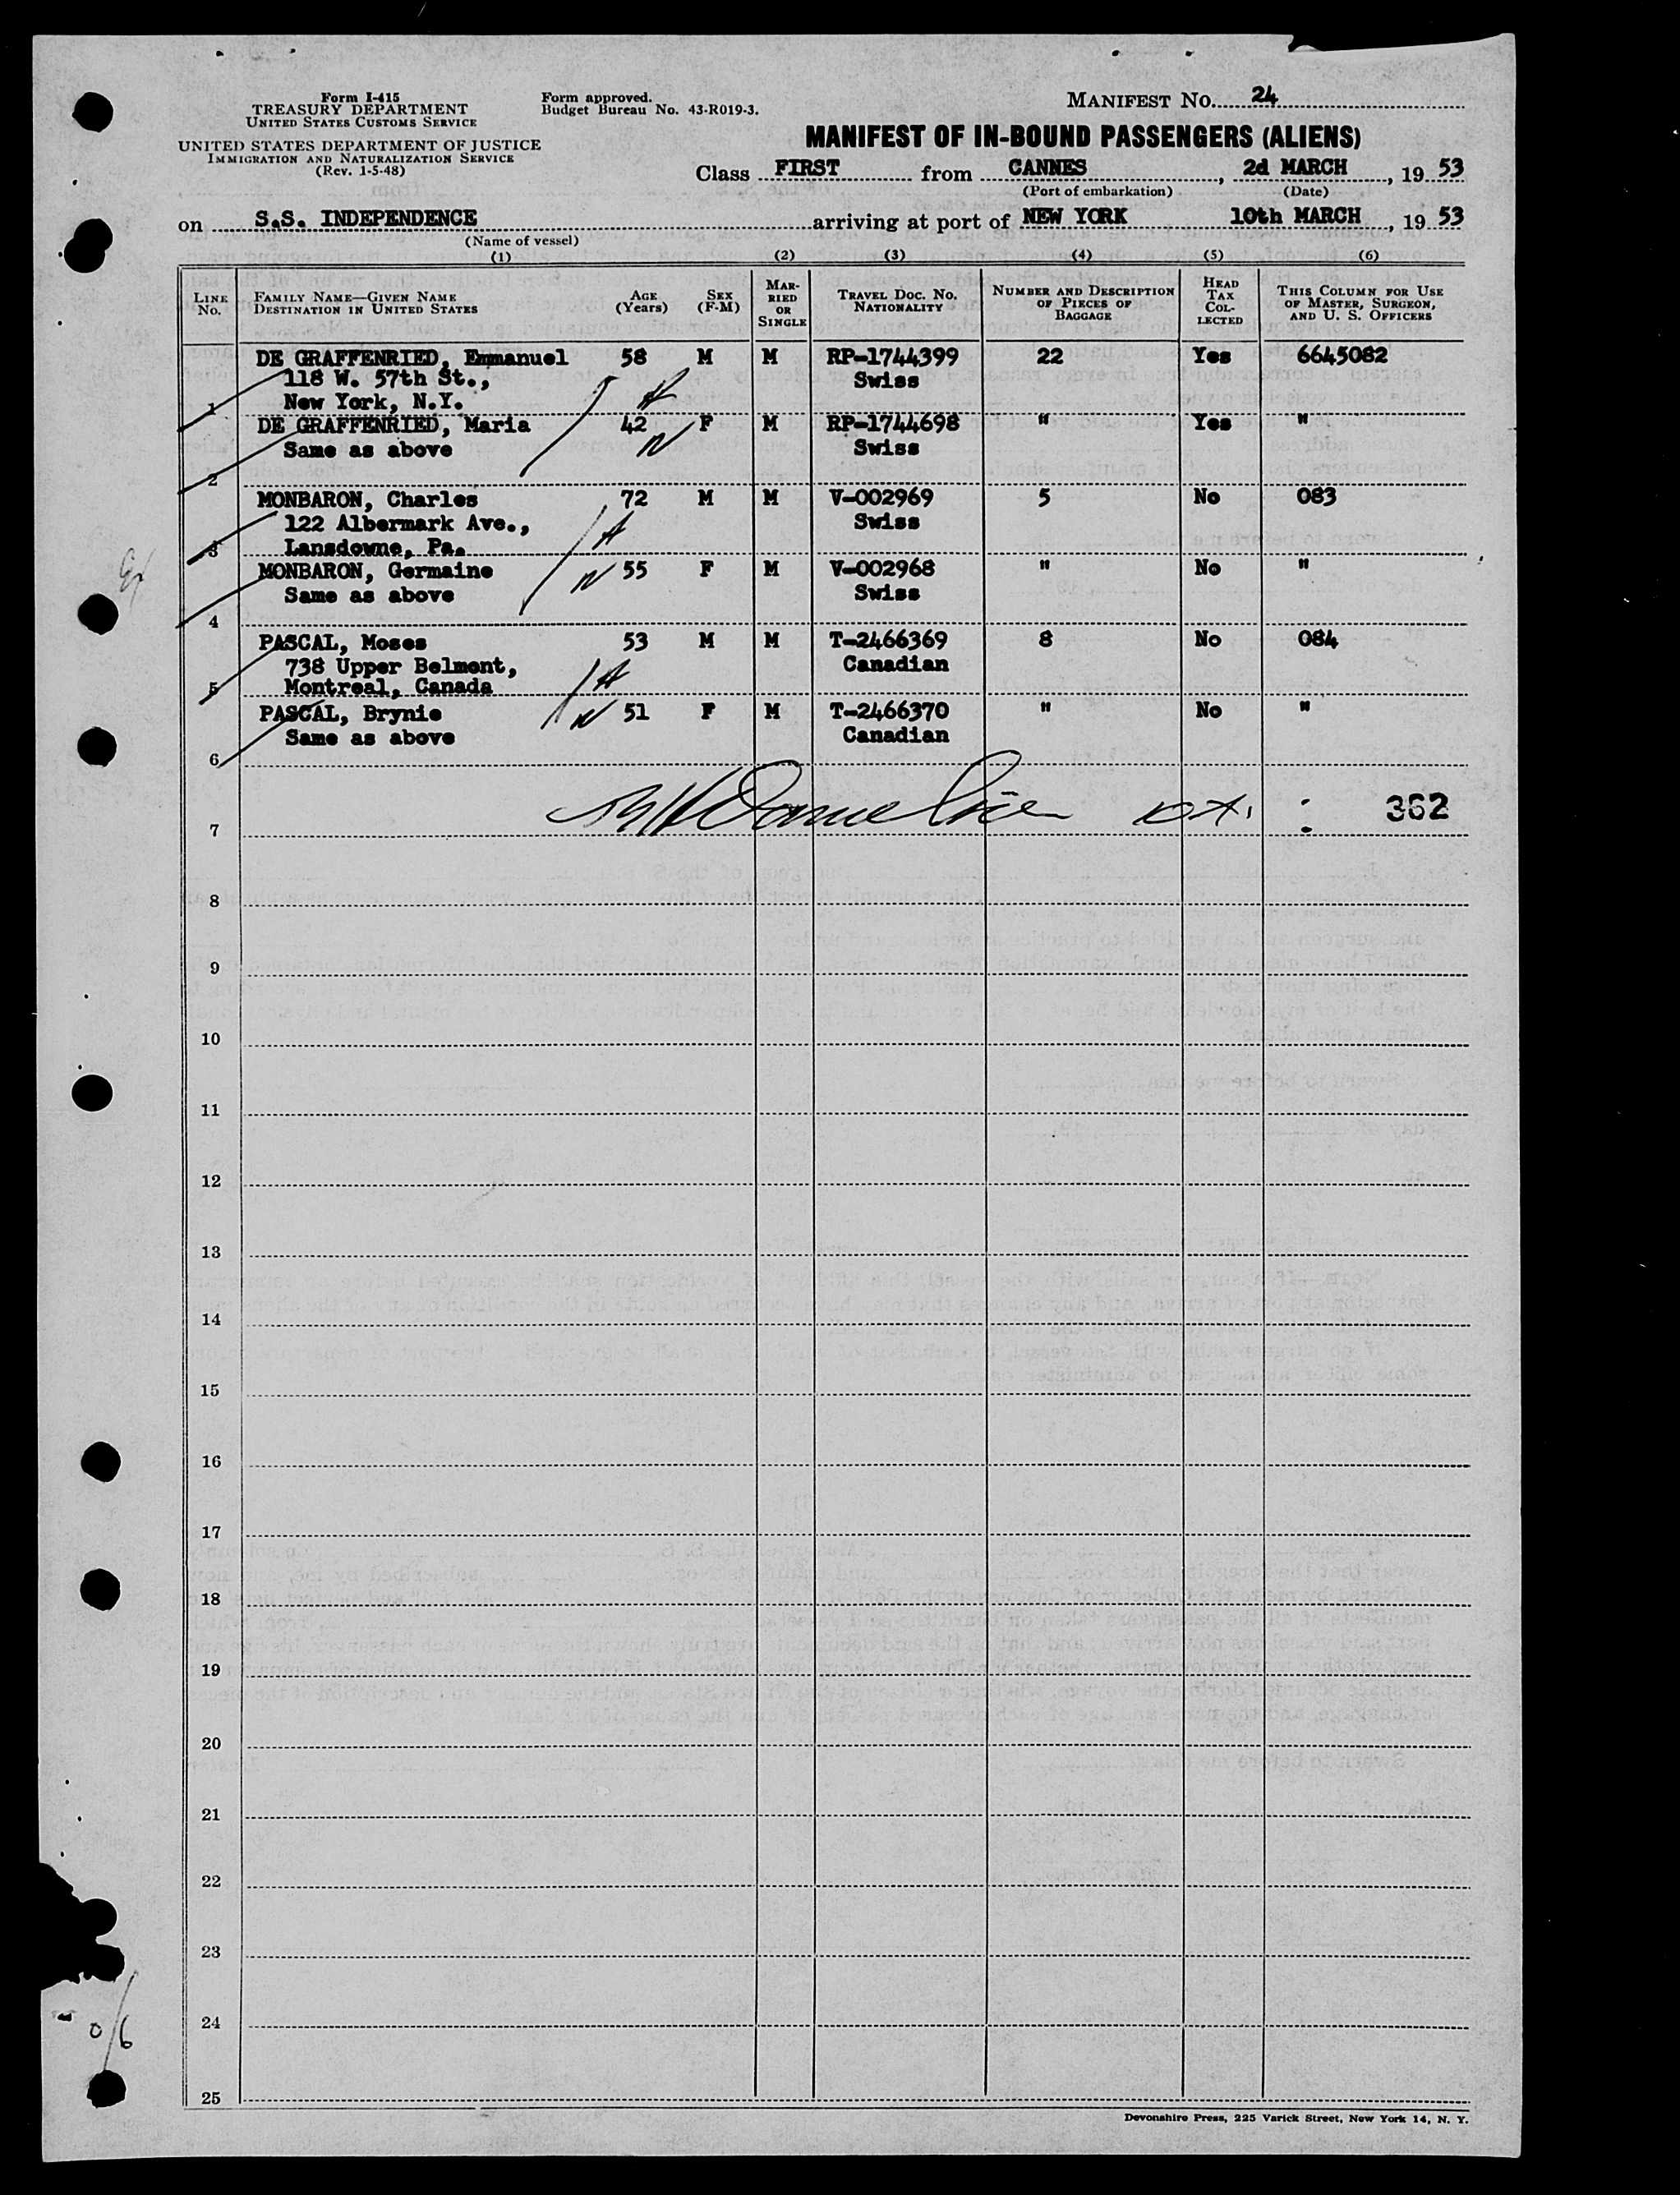 Form I-415
TREASURY DEPARTMENT
UNITED STATES CUSTOMS SERVICE
UNITED STATES DEPARTMENT OF JUSTICE
IMMIGRATION AND NATURALIZATION SERVICE
(Rev. 1-5-48)
Form approved.
Budget Bureau No. 43-R019-3.
MANIFEST NO. 24
MANIFEST OF IN-BOUND PASSENGERS (ALIENS)
Class FIRST from CANNES, 2d MARCH, 19 53
(Port of embarkation) (Date)
on S.S. INDEPENDENCE arriving at port of NEW YORK 10th MARCH, 19 53
(Name of vessel)
(1) (2) (3) (4) (5) (6)
LINE NO. FAMILY NAME—GIVEN NAME DESTINATION IN UNITED STATES AGE (Years) SEX (F-M) MARRIED OR SINGLE TRAVEL DOC. NO. NATIONALITY NUMBER AND DESCRIPTION OF PIECES OF BAGGAGE HEAD TAX COLLECTED THIS COLUMN FOR USE OF MASTER, SURGEON, AND U. S. OFFICERS
DE GRAFFENRIED, Emmanuel 58 M M RP-1744399 22 Yes 6645082
118 W. 57th St., Swiss
1 New York, N.Y.
DE GRAFFENRIED, Maria 42 F M RP-1744698 " Yes "
Same as above Swiss
2
MONBARON, Charles 72 M M V-002969 5 No 083
122 Albermark Ave., Swiss
3 Lansdowne, Pa.
MONBARON, Germaine 55 F M V-002968 " No "
Same as above Swiss
4
PASCAL, Moses 53 M M T-2466369 8 No 084
738 Upper Belmont, Canadian
5 Montreal, Canada
PASCAL, Brynie 51 F M T-2466370 " No "
Same as above Canadian
6
7 362
8
9
10
11
12
13
14
15
16
17
18
19
20
21
22
23
24
0/6
25
Devonshire Press, 225 Varick Street, New York 14, N. Y.